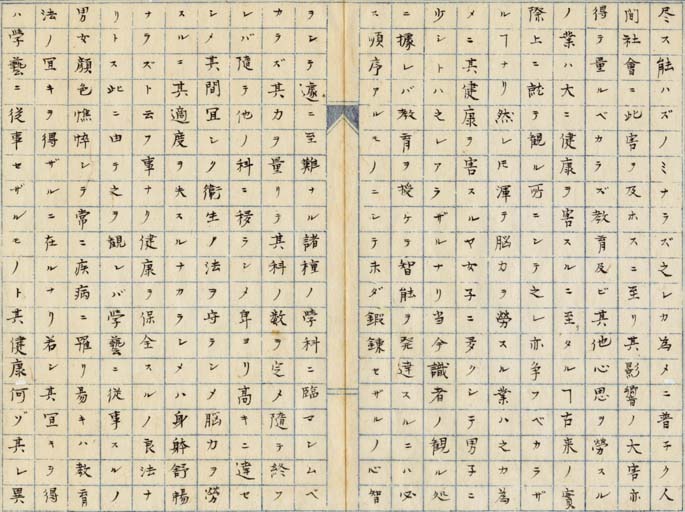 尽ス能ハズノミナラズ之レカ為メニ普子ク人
間社會ニ此害ヲ及ホスニ至リ其影響ノ大害亦
得テ量ルベカラズ教育及ビ其他心思ヲ勞スル
ノ業ハ大ニ健康ヲ害スルニ至タルヿ古来ノ實
際上ニ就テ観ル所ニシテ之レ亦争フベカラザ
ルヿナリ然レ𪜈渾テ脳力ヲ勞スル業ハ之カ為
メニ其健康ヲ害スルヤ女子ニ多クシテ男子ニ
少シトハ之レアラザルナリ当今識者ノ観ル処
ニ據レバ教育ヲ授ケテ智能ヲ発達スルニハ必
ス順序アルモノニシテ未ダ鍛錬セザルノ心智
ヲシテ遽ニ至難ナル諸種ノ學科ニ臨マシムベ
カラズ其力ヲ量リテ其科ノ数ヲ定メ隨テ終フ
レバ隨テ他ノ科ニ移ラシメ卑ヨリ高キニ達セ
シメ其間冝シク衛生ノ法ヲ守ラシメ脳力ヲ勞
スルニ其適度ヲ失スルナカラシメハ身躰舒暢
ナラズト云フ事ナク健康ヲ保全スルノ良法ナ
リトス此ニ由テ之ヲ観レバ學藝ニ従事スルノ
男女顔色憔悴シテ常ニ疾病ニ罹リ易キハ教育
法ノ冝キヲ得ザルニ在ルナリ若シ其冝キヲ得
ハ學藝ニ従事セザルモノト其健康何ゾ其レ異